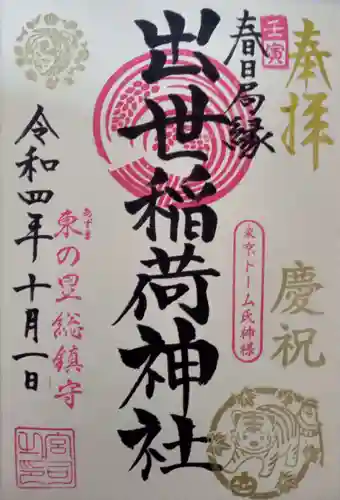 奉拝
慶祝
壬寅
春日局縁
東京ドーム氏神様
出世稲荷神社
あずま
東の里総鎮守
令和四年十月一日
宮司之印